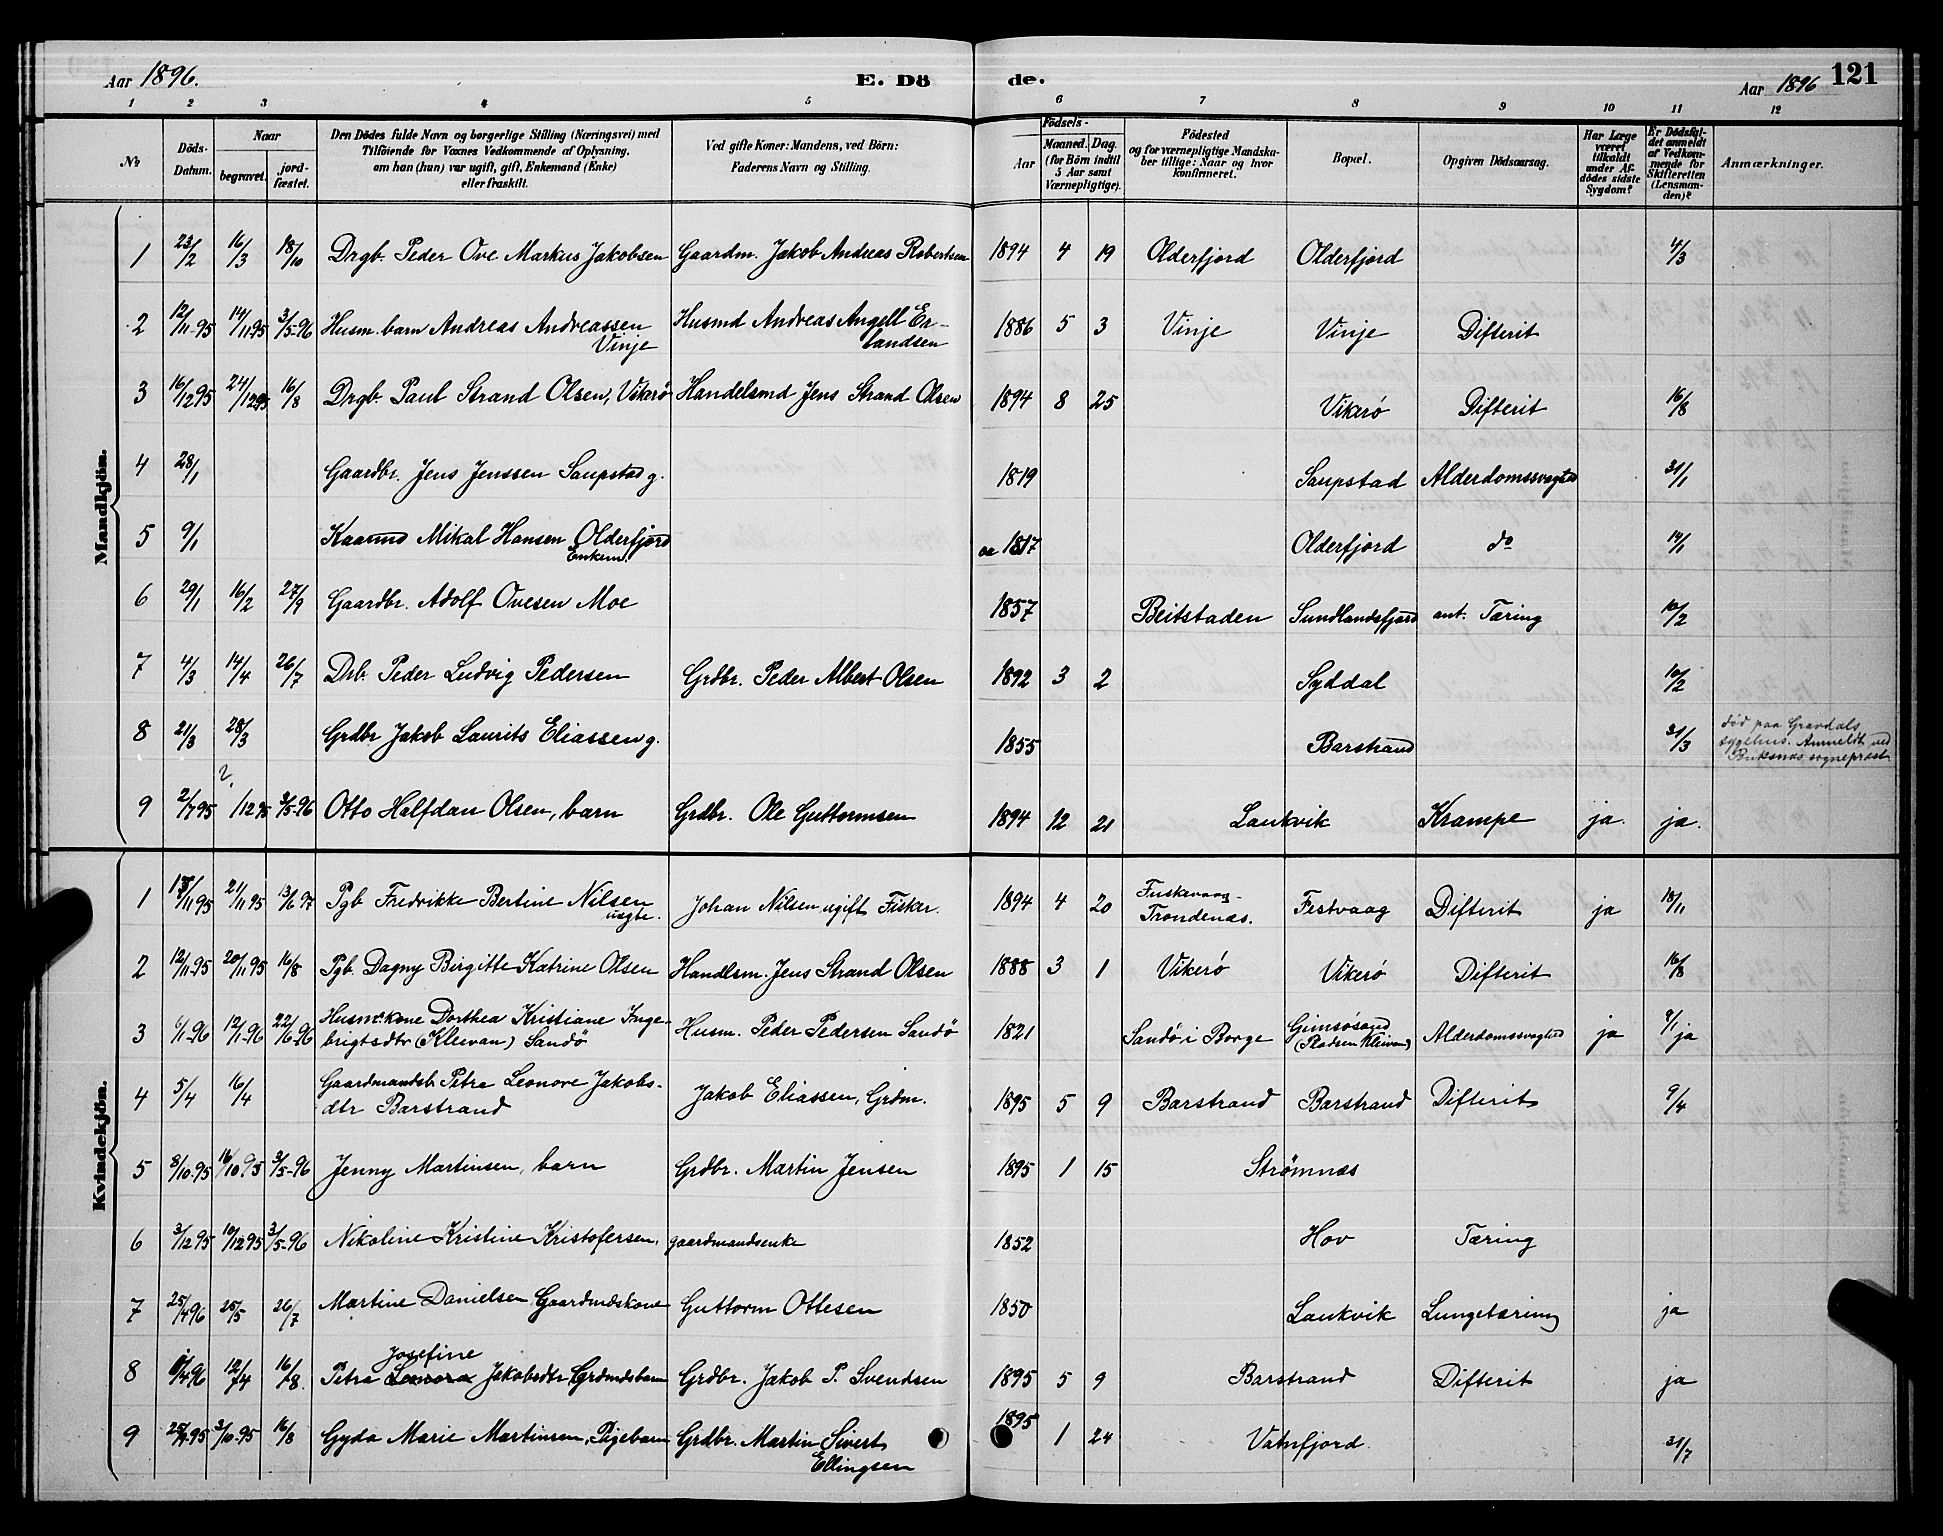 Aar 1896. E. Dö de. Aar 1896 121
1 2 3 4 5 6 7 8 9 10 11 12
№ Döds-Datum. Naar begravet. jordfæstet. Den Dödes fulde Navn og borgerlige Stilling (Næringsvei) med Tilföiende for Voxnes Vedkommende af Oplysning, om han (hun) var ugift, gift, Enkemand (Enke) eller fraskilt. Ved gifte Koner: Mandens, ved Börn: Faderens Navn og Stilling. Födsels- Aar Maaned. Dag. (for Börn indtil 5 Aar samt Værnepligtige). Födested og for værnepligtige Mandskaber tillige: Naar og hvor konfirmeret. Bopæl. Opgiven Dödsaarsag. Har Læge været tilkaldt under Afdödes sidste Sygdom? Er Dödsfaldet anmeldt af Vedkommende for Skifteretten (Lensmanden)? Anmærkninger.
Mandkjön.
1 23/2 16/3 18/10 Drgb. Peder Ove Markus Jakobsen Gaardm. Jakob Andreas Robertsen 1894 4 19 Olderfjord Olderfjord 4/3
2 12/11-95 14/11 95 3/5-96 Husm. barn Andreas Andreassen Vinje Husmd Andreas Angell Erlandsen 1886 5 3 Vinje Vinje Difterit
3 16/12 95 24/12 95 16/8 Drgb. Paul Strand Olsen, Vikerö Handelsmd Jens Strand Olsen 1894 8 25 Vikerø Difterit 16/8
4 28/1 Gaardbr. Jens Jenssen Saupstad g. 1819 Saupstad Alderdomssvaghed 31/1
5 9/1 Kaarmd Mikal Hansen Olderfjord Enkem. ca 1817 Olderfjord do 14/1
6 29/1 16/2 27/9 Gaardbr. Adolf Ovesen Moe 1857 Beitstaden Sundlandsfjord ant. Tæring 10/2
7 4/3 14/4 26/7 Drb. Peder Ludvig Pedersen Grdbr. Peder Albert Olsen 1892 3 2 Syddal 10/2
8 21/3 28/3 Grdbr Jakob Laurits Eliassen g. 1855 Barstrand 31/3 død paa Gravdals sygehus. Anmeldt ved Buksnæs sognepræst
9 2/7 95 ? /12 95 3/5-96 Otto Halfdan Olsen, barn Grdbr. Ole Guttormsen 1894 12 21 Laukvik Krampe ja. ja.
Kvindekjön.
1 /11 95 21/11 95 13/6 97 Pgb Fredrikke Bertine Nilsen uegte. Johan Nilsen ugift Fisker. 1894 4 20 Fuskevaag Trondenæs. Festvaag Difterit ja 18/11
2 12/11-95 20/11 95 16/8 Pgb. Dagny Birgitte Katrine Olsen Handlsm. Jens Strand Olsen 1888 3 1 Vikerø Vikerø Difterit 16/8
3 6/1-96 12/1-96 22/6-96 Husm.kone Dorthea Kristiane Ingebrigtsdtr (Kleivan) Sandö Husm. Peder Pedersen Sandö 1821 Sandö i Borge Gimsøsand (Pladsen Kleivan) Alderdomssvaghed ja 9/1 ja
4 5/4 16/4 Gaardmandsb. Petra Leonore Jakobsdtr Barstrand Jakob Eliassen, Grdm. 1895 5 9 Barstrand Barstrand Difterit 9/4
5 8/10-95 16/10 95 3/5-96 Jenny Martinsen, barn Grdbr. Martin Jensen 1895 1 15 Strømnæs
6 3/12 95 10/12 95 3/5-96 Nikoline Kristine Kristofersen, gaardmandsenke 1852 Hov Tæring
7 25/4 96 25/5 26/7 Martine Danielsen Gaardmdskone Guttorm Ottesen 1850 Laukvik Lungetæring ja
8 /4 96 12/4 16/8. Petra Leonora Josefine Jakobsdtr Grdmdsbarn Grdbr. Jakob P. Svendsen 1895 5 9 Barstrand Difterit ja
9 95 3/10-95 16/8 Gyda Marie Martinsen, Pigebarn Grdbr. Martin Sivert Ellingsen 1895 1 24 Vatnfjord 31/7